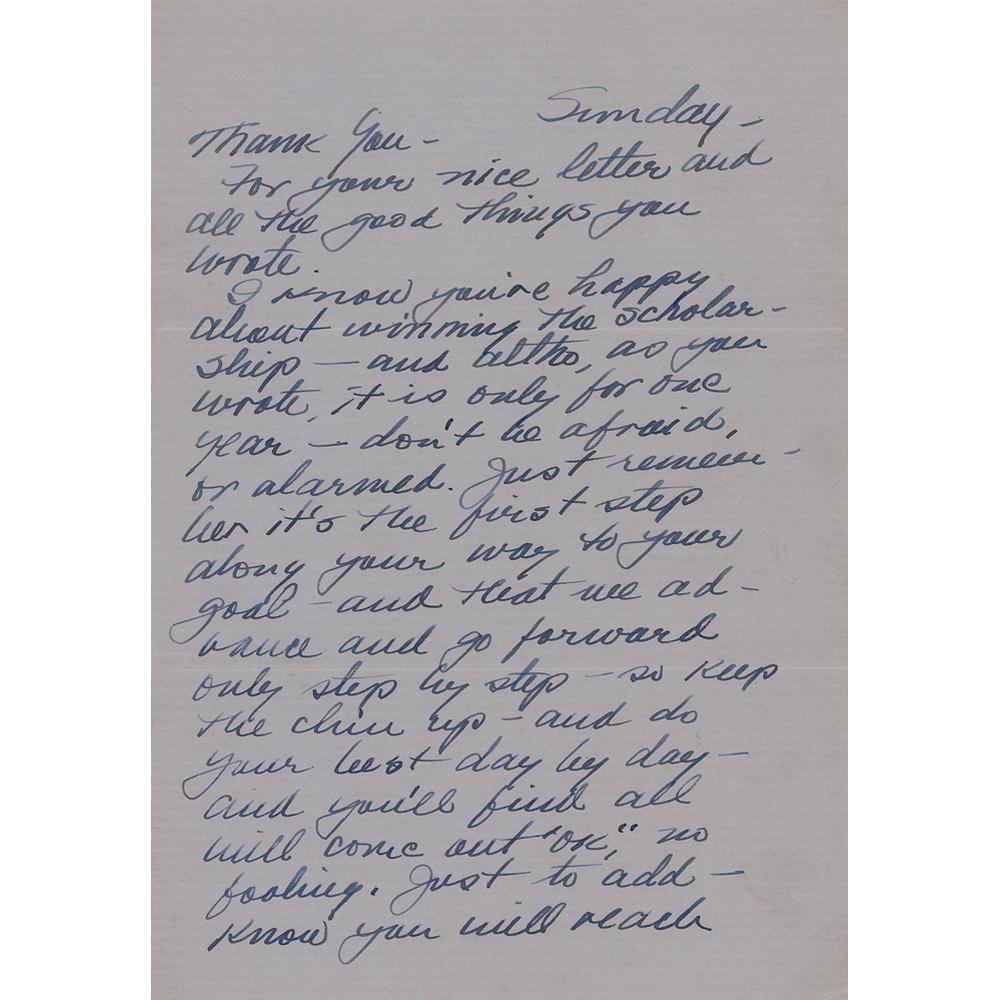 Sunday —
Thank You —
For your nice letter and
all the good things you
wrote.
I know you're happy
about winning the scholar-
ship — and altho, as you
wrote, it is only for one
year — don't be afraid,
or alarmed. Just remem-
ber it's the first step
along your way to your
goal — and that we ad-
vance and go forward
only step by step — so keep
the chin up — and do
your best day by day —
and you'll find all
will come out "OK," no
fooling. Just to add —
know you will reach